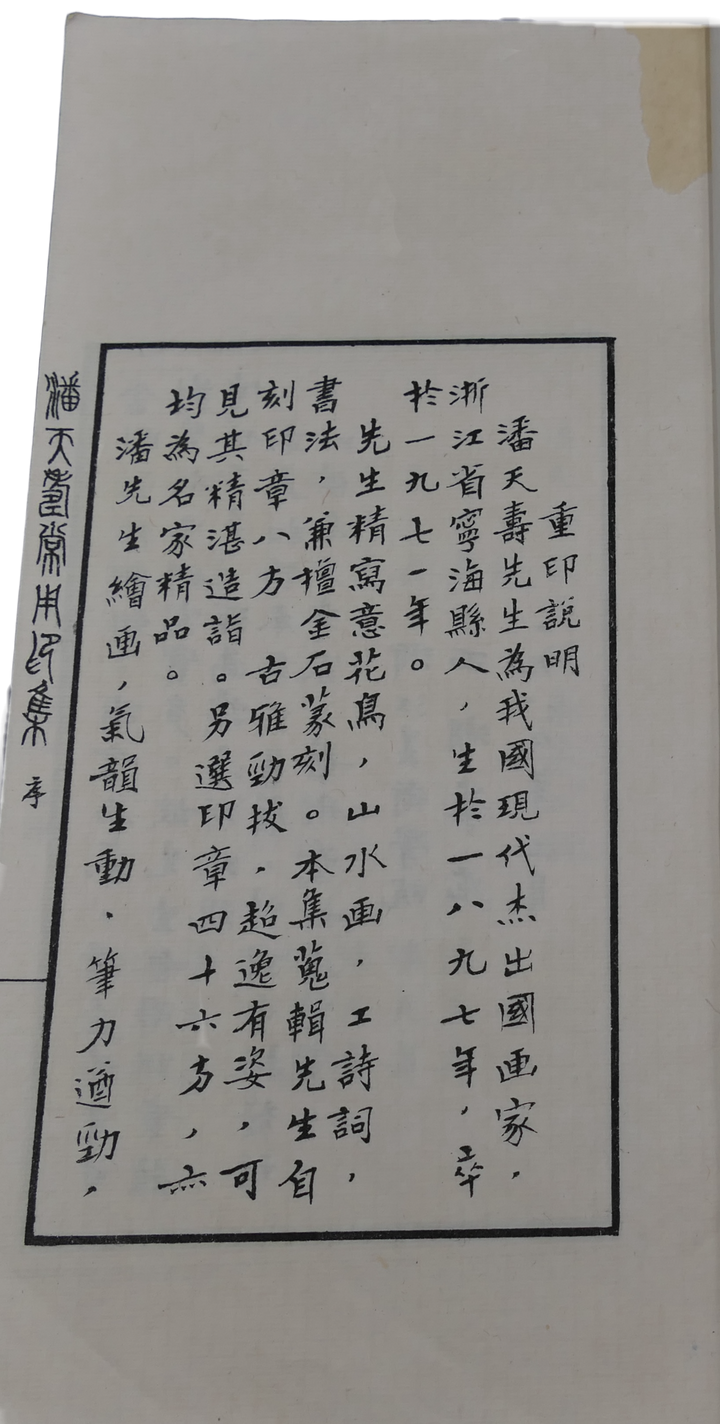 重印說明
潘天壽先生為我國現代杰出國画家，
浙江省寧海縣人，生於一八九七年，卒
於一九七一年。
先生精寫意花鳥，山水画，工詩詞，
書法，兼擅金石篆刻。本集蒐輯先生自
刻印章八方　古雅勁拔，超逸有姿，可
見其精湛造詣。另選印章四十六方，亦
均為名家精品。
潘先生繪画，氣韻生動，筆力遒勁，
潘天壽常用印集　序